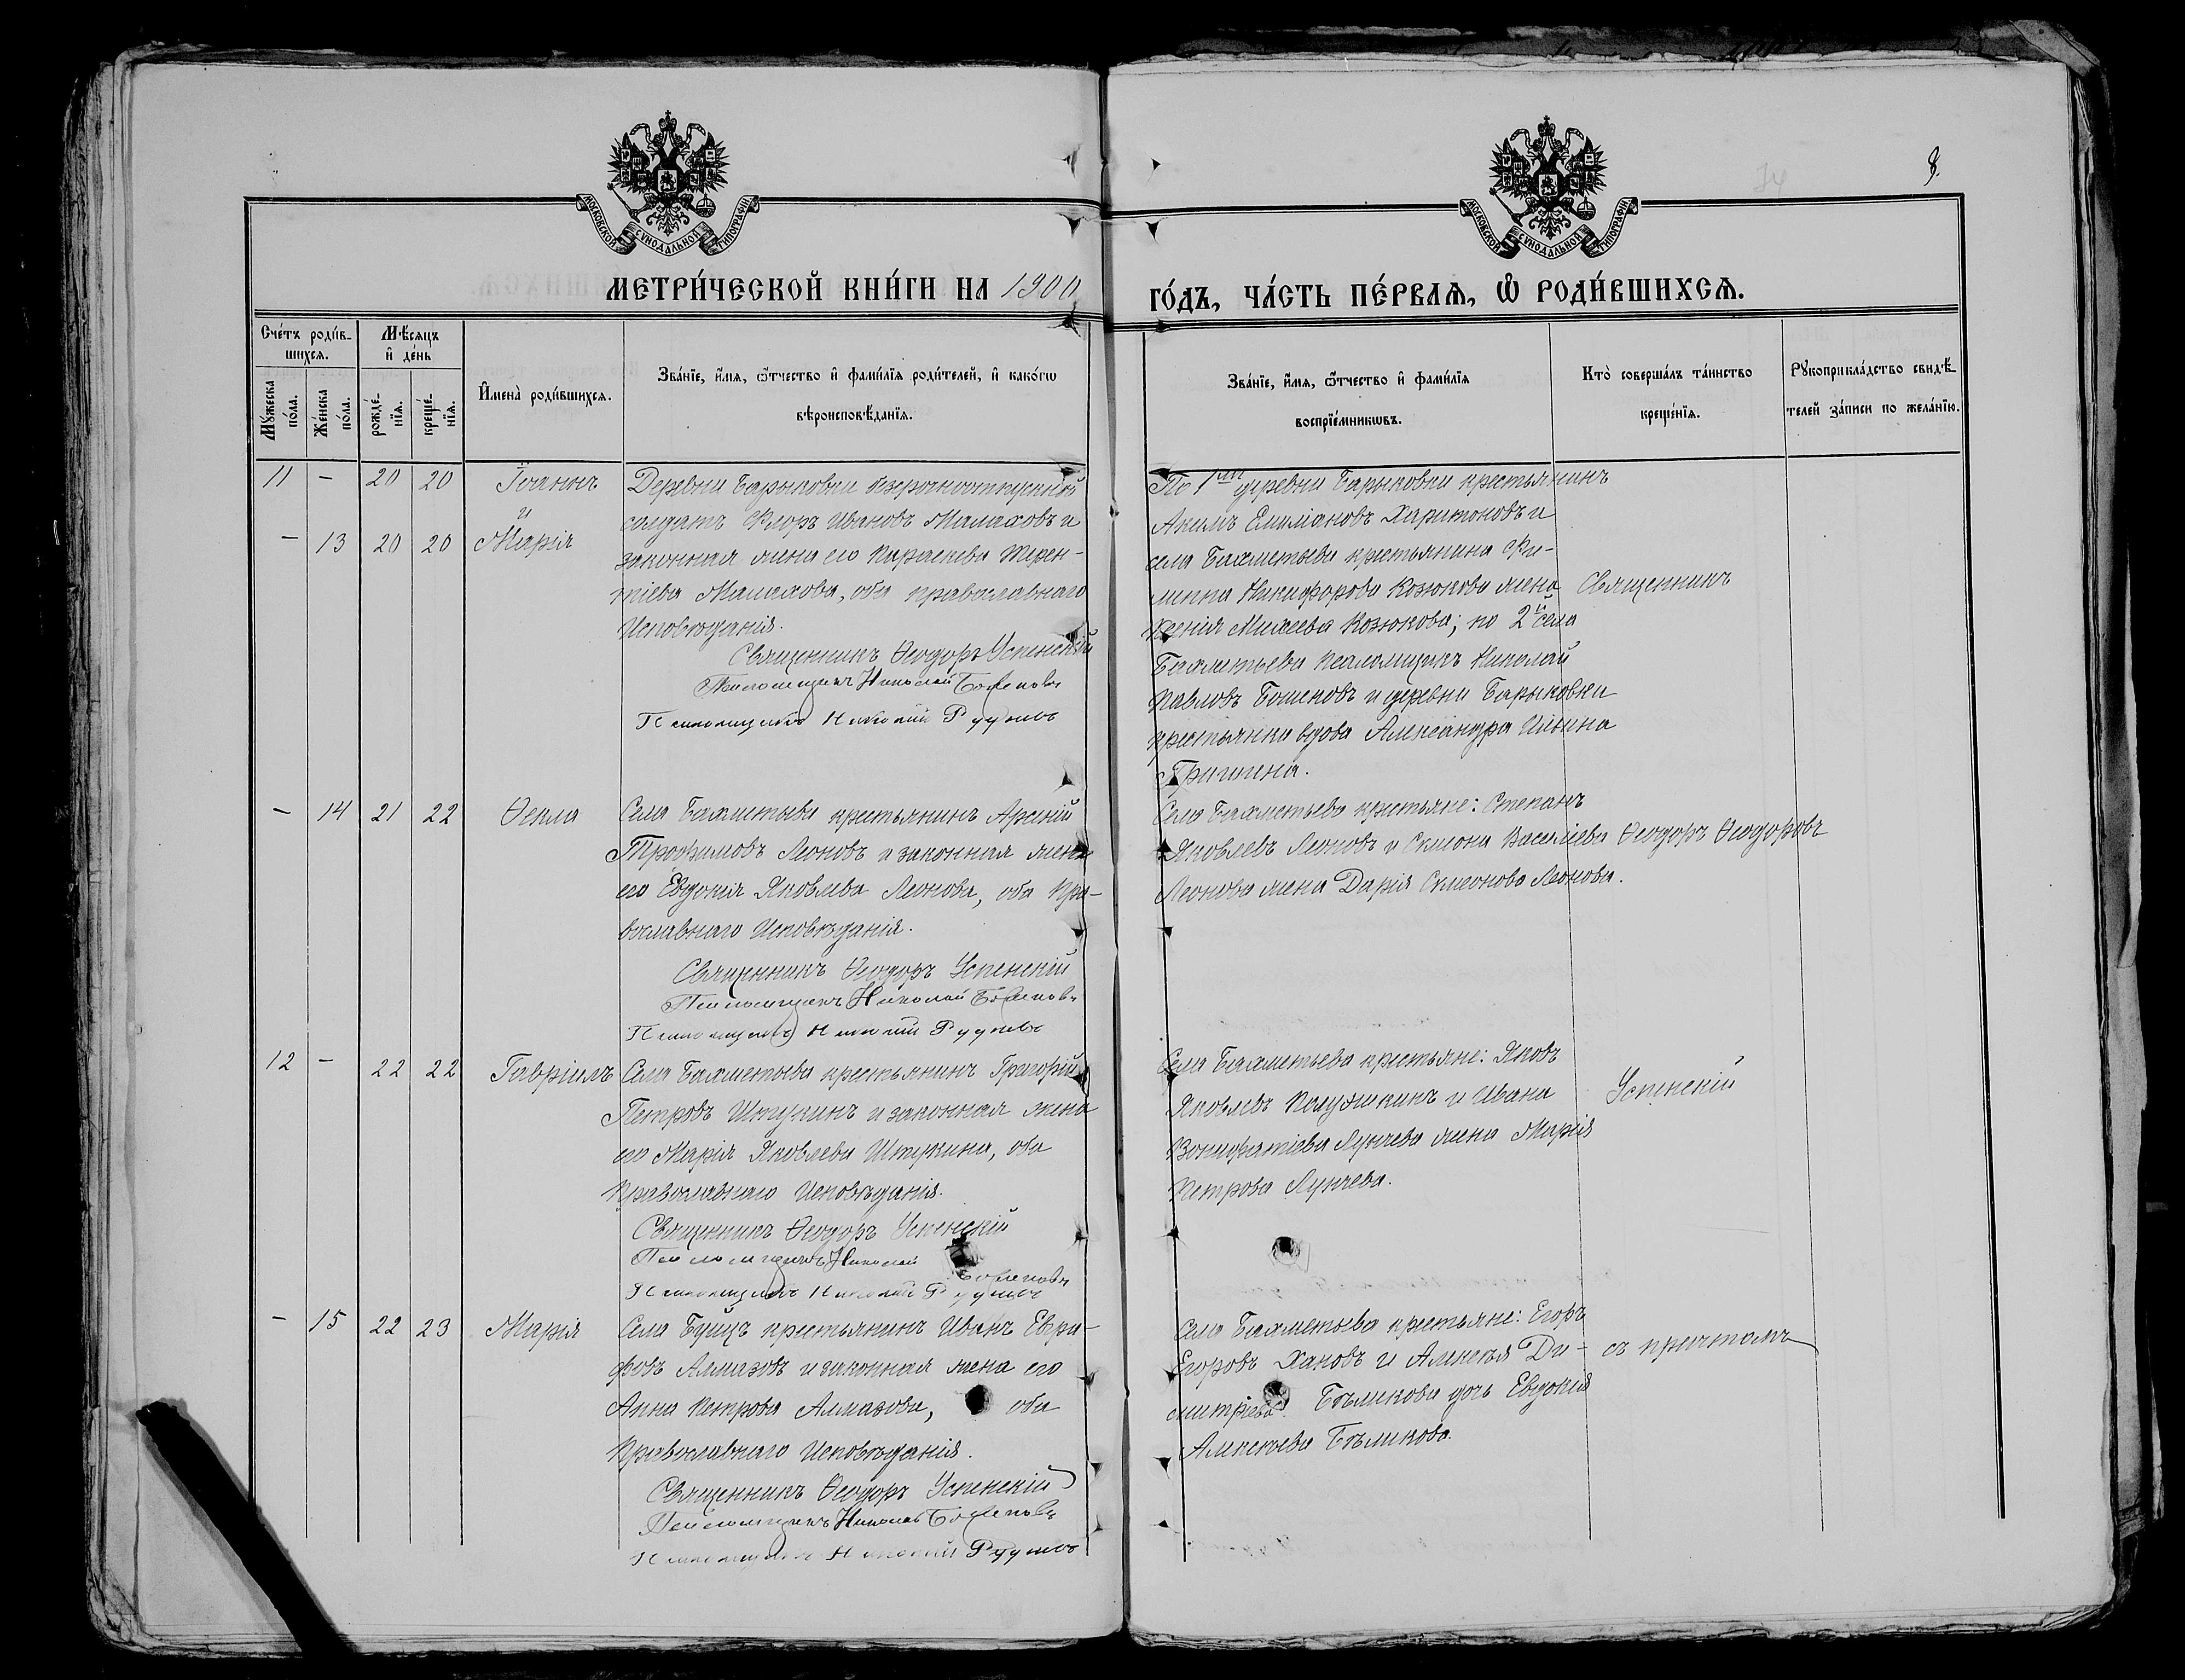 8.
МОСКОВСКОЙ СѴНОДАЛЬНОЙ ТИПОГРАФІИ
МОСКОВСКОЙ СѴНОДАЛЬНОЙ ТИПОГРАФІИ
МЕТРИ́ЧЕСКОЙ КНИ́ГИ НА 1900
ГО́ДЪ, ЧА́СТЬ ПЕ́РВАѦ, Ѡ РОДИ́ВШИХСѦ.
Сче́тъ роди́в-
шихсѧ.
Мѣ́сѧцъ
и҆ де́нь
Мꙋ́жеска
по́ла.
Же́нска
по́ла.
рожде́-
нїѧ.
креще́-
нїѧ.
И҆мена̀ роди́вшихсѧ.
Зва́нїе, и҆́мѧ, ѻ҆́тчество и҆ фами́лїѧ роди́телей, и҆ како́гѡ
вѣроисповѣ́данїѧ.
Зва́нїе, и҆́мѧ, ѻ҆́тчество и҆ фами́лїѧ
воспрїе́мникѡвъ.
Кто̀ соверша́лъ та́инство
креще́нїѧ.
Рꙋкоприкла́дство свидѣ́-
телей за́писи по жела́нїю.
11 – 20 20 Іоаннъ
и
– 13 20 20 Марія
Деревни Барыковки безсрочноотпускной
солдатъ Флоръ Ивановъ Малаховъ и
законная жена его Параскева Терен-
тіева Малахова, оба православнаго
Исповѣданія.
Священникъ Ѳеодоръ Успенскій
Псаломщикъ Николай
Псаломщикъ Николай
По 1му деревни Барыковки крестьянинъ
Акимъ Харитоновъ и
села Бахметьева крестьянина Фи-
липпа Никифорова Козюкова жена
Ксенія Михеева Козюкова; по 2й села
Бахметьева псаломщикъ Николай
Павловъ и деревни Барыковки
крестьянка вдова Александра Ильина
Гришина.
Священникъ
– 14 21 22 Ѳекла
Села Бахметьева крестьянинъ Арсеній
Трофимовъ Леоновъ и законная жена
его Евдокія Яковлева Леонова, оба Пра-
вославнаго Исповѣданія.
Священникъ Ѳеодоръ Успенскій
Псаломщикъ Николай
Псаломщикъ Николай
Села Бахметьева крестьяне: Степанъ
Яковлевъ Леоновъ и Симеона Василіева
Леонова жена Дарія Симеонова Леонова.
Ѳеодоръ Ѳеодоровъ
12 – 22 22 Гавріилъ
Села Бахметьева крестьянинъ Григорій
Петровъ Штукинъ и законная жена
его Марія Яковлева Штукина, оба
Православнаго Исповѣданія.
Священникъ Ѳеодоръ Успенскій
Псаломщикъ Николай
Псаломщикъ Николай
Села Бахметьева крестьяне: Яковъ
Яковлевъ и Ивана
Вонифатіева Лунчева жена Марія
Петрова Лунчева.
Успенскій
– 15 22 23 Марія
Села Буицъ крестьянинъ Иванъ Евгра-
фовъ Алмазовъ и законная жена его
Анна Петрова Алмазова, оба
Православнаго Исповѣданія.
Священникъ Ѳеодоръ Успенскій
Псаломщикъ Николай
Псаломщикъ Николай
Села Бахметьева крестьяне: Егоръ
Егоровъ Хановъ и Алексѣя Ди-
митріева Бѣликова дочь Евдокія
Алексѣева Бѣликова.
съ причтомъ